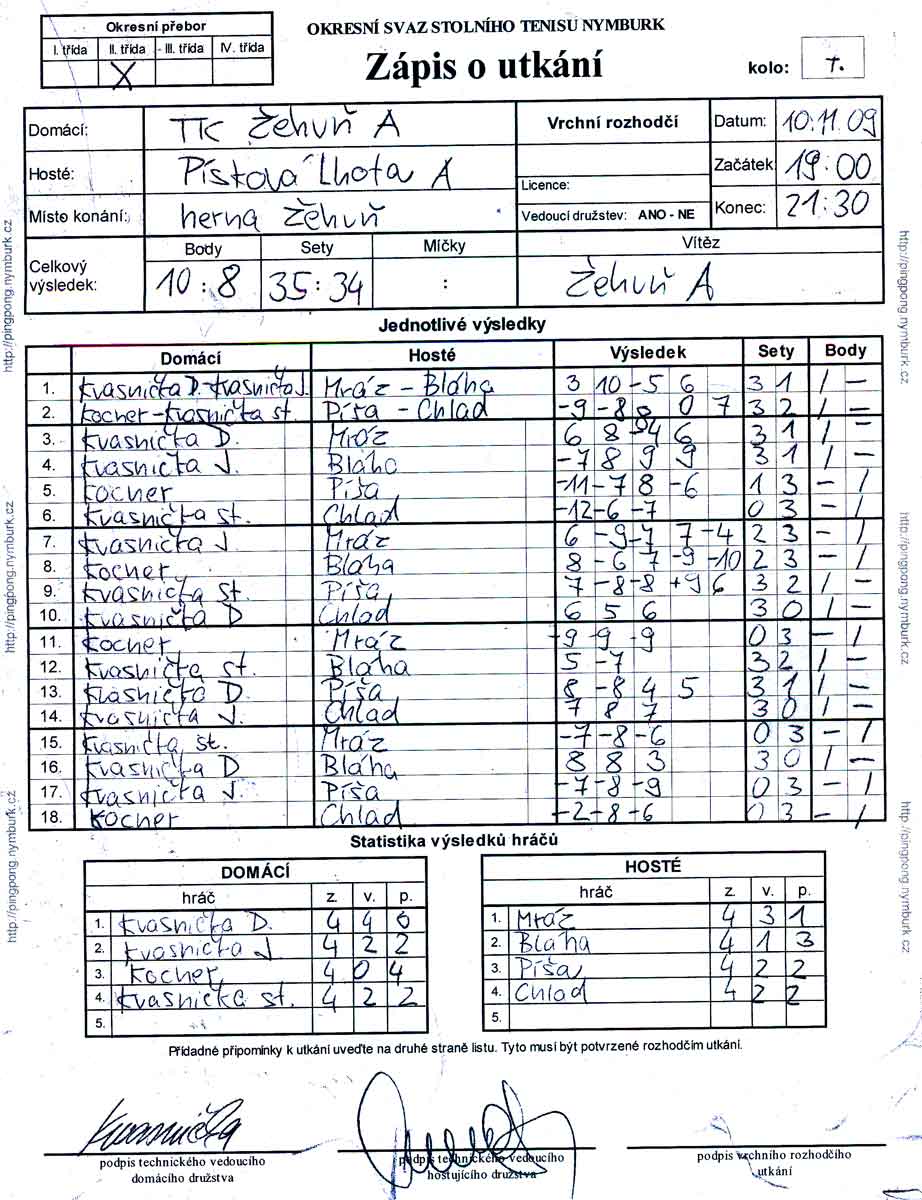 Okresní přebor
I. třída II. třída - III. třída IV. třída
X
OKRESNÍ SVAZ STOLNÍHO TENISU NYMBURK
Zápis o utkání
kolo: 7.
Domácí: TTC Žehuň A
Hosté: Písková Lhota A
Místo konání: herna Žehuň
Vrchní rozhodčí
Licence:
Vedoucí družstev: ANO - NE
Datum: 10.11.09
Začátek: 19:00
Konec: 21:30
Celkový výsledek:
Body Sety Míčky Vítěz
10:8 35:34 : Žehuň A
Jednotlivé výsledky
Domácí Hosté Výsledek Sety Body
1. Kvasnička D.-Kvasnička J. Mráz - Bláha 3 10 -5 6 3 1 1 -
2. Kocher-Kvasnička st. Píša - Chlad -9 -8 8 0 7 3 2 1 -
3. Kvasnička D. Mráz 6 8 -4 6 3 1 1 -
4. Kvasnička J. Bláha -7 8 9 9 3 1 1 -
5. Kocher Píša -11 -7 8 -6 1 3 - 1
6. Kvasnička st. Chlad -12 -6 -7 0 3 - 1
7. Kvasnička J. Mráz 6 -9 -7 7 -4 2 3 - 1
8. Kocher Bláha 8 -6 7 -9 -10 2 3 - 1
9. Kvasnička st. Píša 7 -8 -8 +9 6 3 2 1 -
10. Kvasnička D Chlad 6 5 6 3 0 1 -
11. Kocher Mráz -9 -9 -9 0 3 - 1
12. Kvasnička st. Bláha 5 -7 3 2 1 -
13. Kvasnička D. Píša 8 -8 4 5 3 1 1 -
14. Kvasnička J. Chlad 7 8 7 3 0 1 -
15. Kvasnička st. Mráz -7 -8 -6 0 3 - 1
16. Kvasnička D Bláha 8 8 3 3 0 1 -
17. Kvasnička J. Píša -7 -8 -9 0 3 - 1
18. Kocher Chlad -2 -8 -6 0 3 - 1
Statistika výsledků hráčů
DOMÁCÍ
hráč z. v. p.
1. Kvasnička D. 4 4 0
2. Kvasnička J 4 2 2
3. Kocher 4 0 4
4. Kvasnička st. 4 2 2
5.
HOSTÉ
hráč z. v. p.
1. Mráz 4 3 1
2. Bláha 4 1 3
3. Píša 4 2 2
4. Chlad 4 2 2
5.
Přídadné připomínky k utkání uveďte na druhé straně listu. Tyto musí být potvrzené rozhodčím utkání.
Kvasnička
podpis technického vedoucího domácího družstva
podpis technického vedoucího hostujícího družstva
podpis vrchního rozhodčího utkání
http://pingpong.nymburk.cz
http://pingpong.nymburk.cz
http://pingpong.nymburk.cz
http://pingpong.nymburk.cz
http://pingpong.nymburk.cz
http://pingpong.nymburk.cz